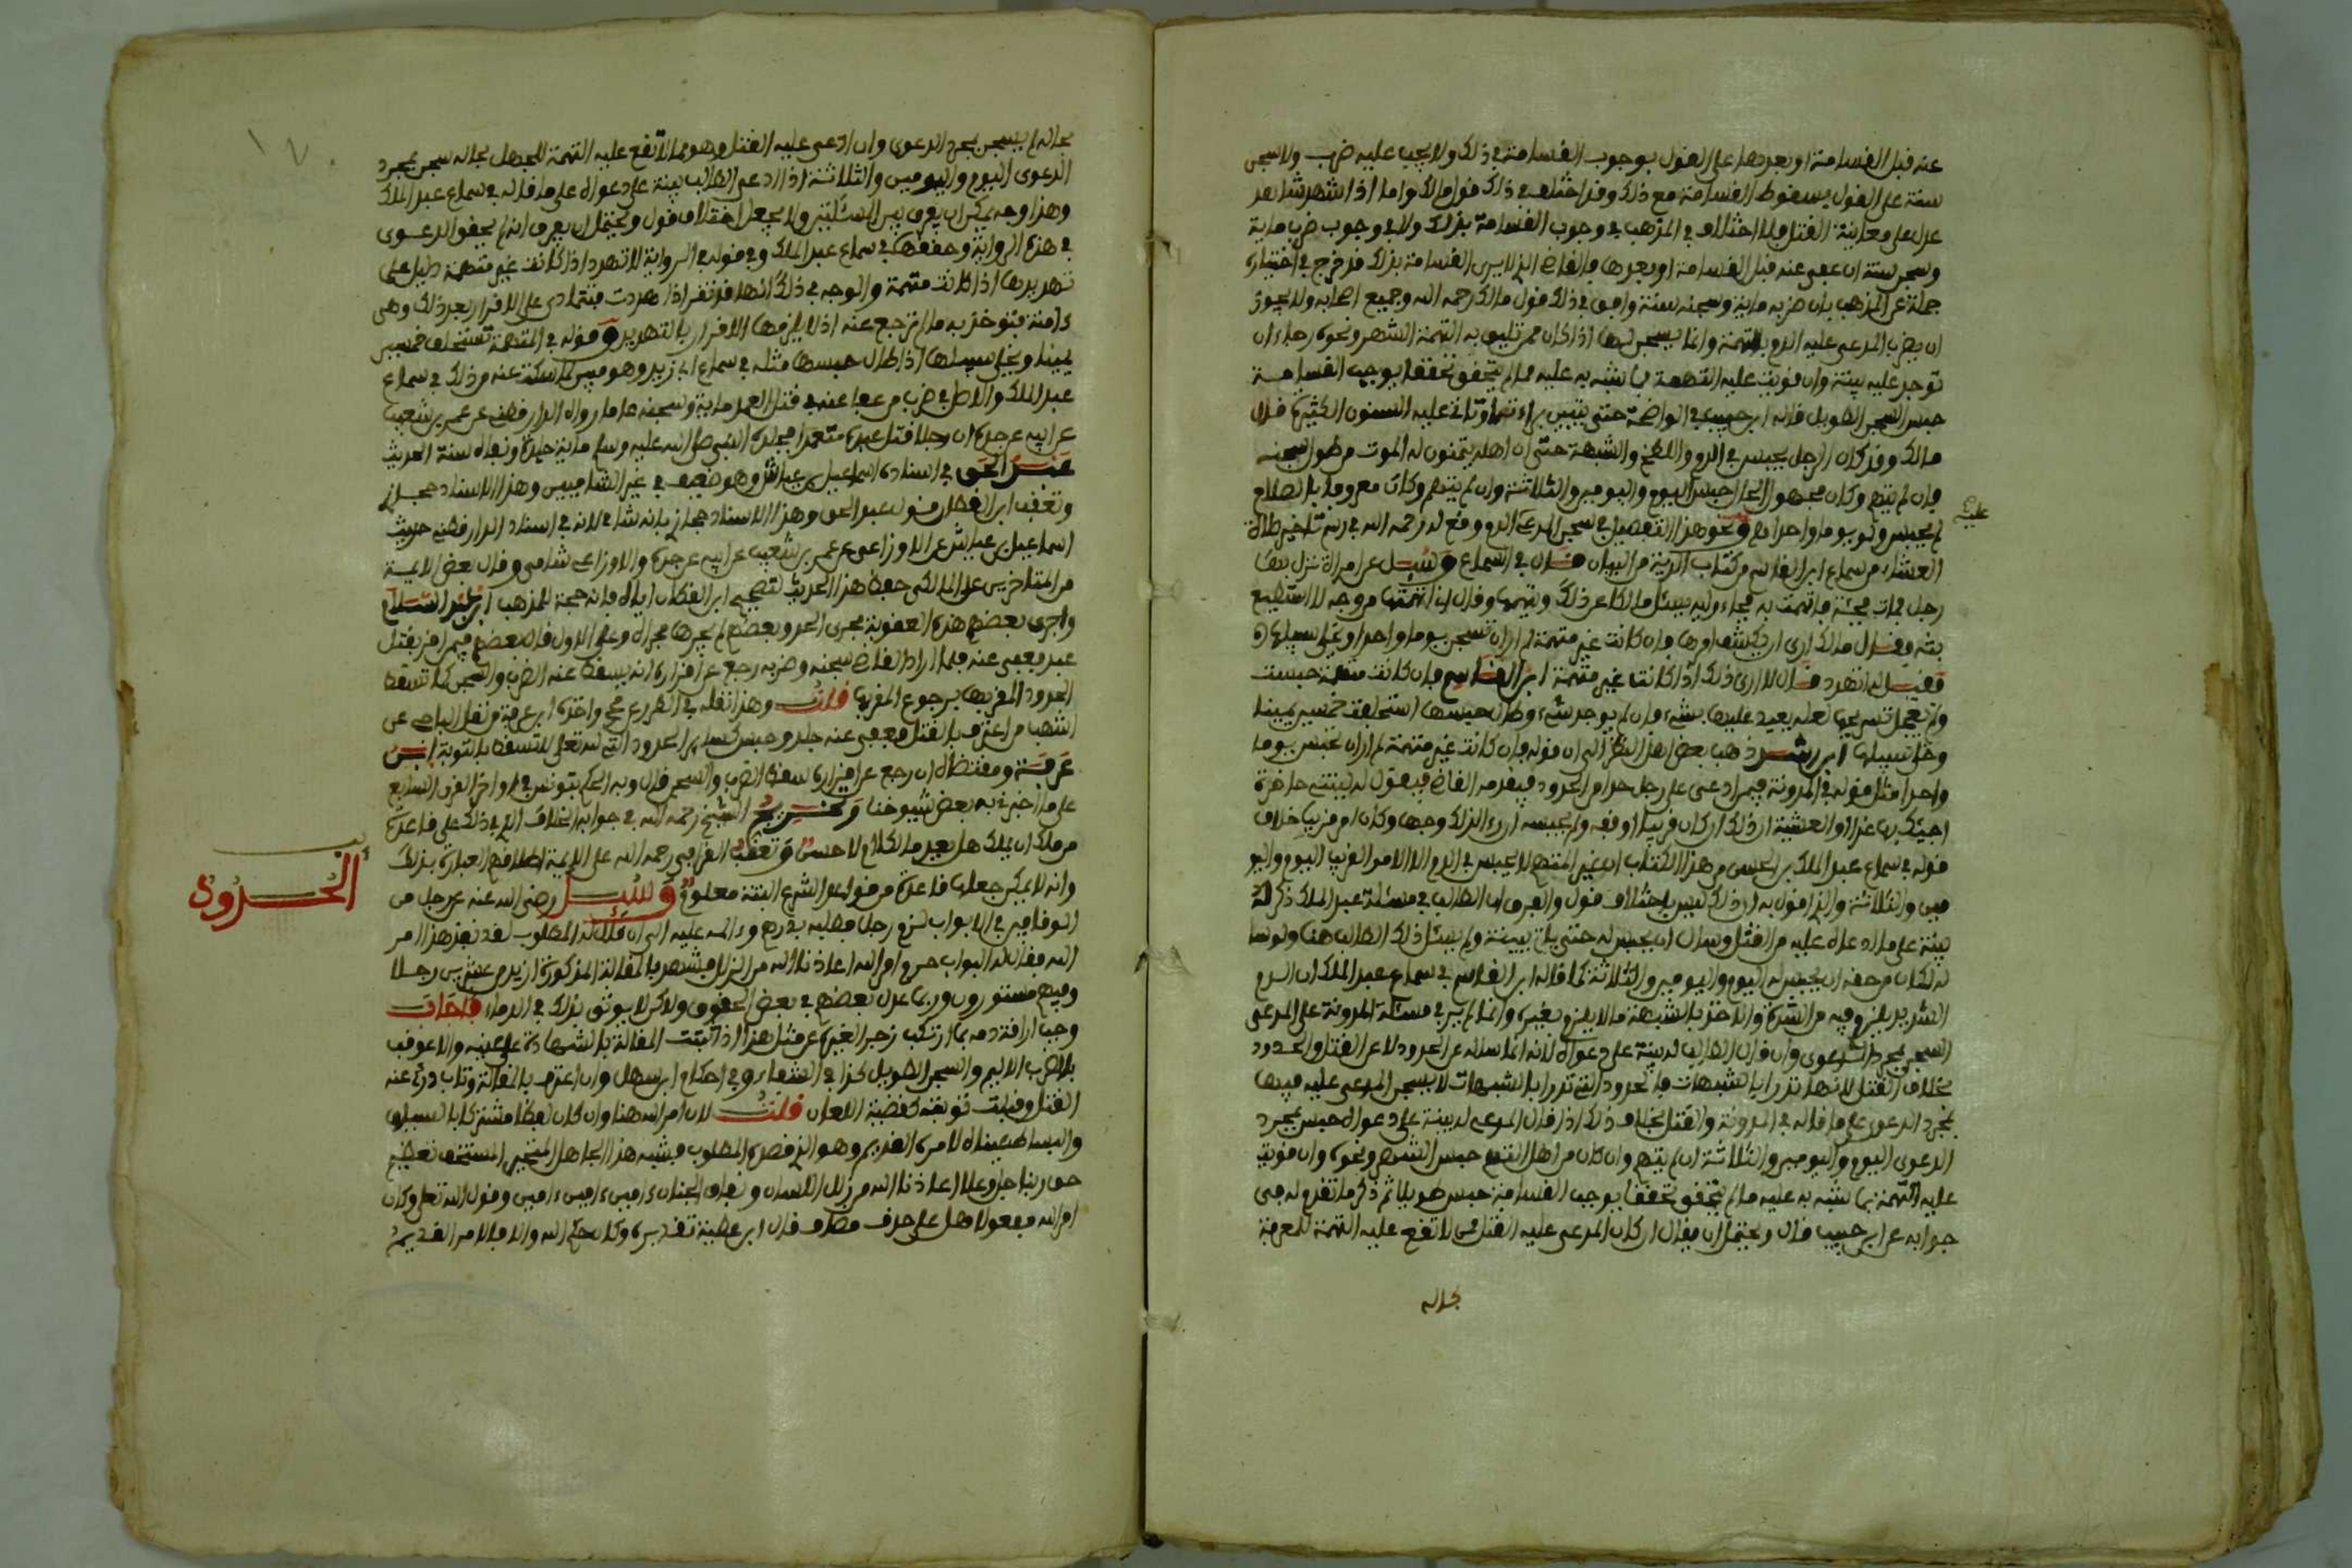 عنه قبل القسامة او بعدها على القول بوجوب القسامة في ذلك ولا يجب عليه ضرب ولا سجن
سنة على القول بسقوط القسامة مع ذلك وقد اختلف في ذلك قول مالك واما اذا شهد شاهد
عدل على معاينة القتل فلا اختلاف في المذهب في وجوب القسامة بذلك ولا في وجوب ضرب ماية
وسجن سنة ان عفى عنه قبل القسامة او بعدها فالقاضي الذي لا يرى القسامة بذلك قد خرج في اختياره
جملة عن المذهب بان ضربه ماية وسجنه سنة وافق في ذلك قول مالك رحمه الله وجميع اصحابه ولا يجوز
ان يضرب المدعى عليه الدم بالتهمة وانما يسجن لها اذا كان ممن تليق به التهمة الشهر ونحوه رجاء ان
توجد عليه بينة وان قويت عليه التهمة بما شبه به عليه مما لم يتحقق تحققا يوجب القسامة
حبس السجن الطويل قاله ابن حبيب في الواضحة حتى يتبين براءته او تاتي عليه السنون الكثيرة قال
مالك وقد كان الرجل يحبس في الدم واللطخ والشبهة حتى ان اهله يتمنون له الموت من طول سجنه
فان لم يتهم وكان مجهول الحال حبس اليوم واليومين والثلاثة وان لم يتهم وكان معروفا بالصلاح
لم يحبس ولو يوما واحدا ونحو هذا التفصيل في سجن المدعى عليه الدم وقع له رحمه الله في رسم تاخير صلاة
العشاء من سماع ابن القاسم من كتاب الدية من البيان قال في السماع وسيل عن امراة نزل بها
رجل فمات فجئة فاتهمت به فجاء وليه يسئل مالكا عن ذلك ويتهمها وقال ان اتهمتها من وجه لا استطيع
بثه وقال مالك ارى ان يكشف امرها فان كانت غير متهمة لم ار ان تسجن يوما واحدا ويخلى سبيلها
فقيل له اتهدد قال لا ارى ذلك اذا كانت غير متهمة ابن القاسم فان كانت متهمة حبست
ولم يعجل تسريحها لعله يعيد عليها بشيء فان لم يوجد شيء وطال حبسها استحلفت خمسين يمينا
وخلي سبيلها ابن رشد ذهب بعض اهل النظر الى ان قوله فان كانت غير متهمة لم ار ان تحبس يوما
واحدا مثل قوله في المدونة فيمن ادعى على رجل حدا من الحدود فيقدمه القاضي فيقول له بينتي حاضرة
اجيئك بها غدا او العشية ان ذلك ان كان قريبا اوقفه ولم يحبسه اذا راى لذلك وجها وكان امرا قريبا خلاف
قوله في سماع عبد الملك بن الحسن من هذا الكتاب ان غير المتهم لا يحبس في الدم الا الامر القريب اليوم واليو
مين والثلاثة والذي اقول به ان ذلك ليس باختلاف قول والفرق ان الطالب في مسئلة عبد الملك ذكر له
بينة على ما ادعاه عليه من القتل وسال ان يحبس له حتى ياتي ببينة ولم يسئل ذلك الطالب هنا ولو سا
له لكان من حقه ان يحبس له اليوم واليومين والثلاثة كما قاله ابن القاسم في سماع عبد الملك ان الدم
الشديد يلزم فيه من الشدة والاخذ بالشبهة ما لا يلزم بغيره وانما لم ير في مسئلة المدونة على المدعى
السجن بمجرد الدعوى وان قال الطالب له بينة على دعواه لانه انما ساله عن الحدود لا عن القتل والحدود
بخلاف القتل لانها تدرا بالشبهات فالحدود التي تدرا بالشبهات لا يسجن المدعى عليه فيها
بمجرد الدعوى على ما قاله في المدونة والقتل بخلاف ذلك اذا قال المدعي له بينة على دعواه حبس بمجرد
الدعوى اليوم واليومين والثلاثة ان لم يتهم وان كان من اهل التهم حبس الشهر ونحوه وان قويت
عليه التهمة بما شبه به عليه ما لم يتحقق تحققا يوجب القسامة حبس طويلا ثم ذكر ما تقدم له من
جوابه عن ابن حبيب قال ويحتمل ان يقال ان كان المدعى عليه القتل ممن لا تقع عليه التهمة للمعرفة
بحاله
بحاله لم يسجن بمجرد الدعوى وان ادعى عليه القتل وهو ممن لا تقع عليه التهمة للجهل بحاله سجن بمجرد
الدعوى اليوم واليومين والثلاثة اذا ادعى الطالب بينة على دعواه على ما قاله في سماع عبد الملك
وهذا وجه يمكن ان يفرق بين المسئلتين ولا يجعل اختلاف قول ويحتمل ان يفرق انه لم يحقق الدعوى
في هذه الرواية وحققها في سماع عبد الملك وفي قوله في الرواية لا تهدد اذا كانت غير متهمة دليل على
تهديدها اذا كانت متهمة والوجه في ذلك انها قد تقر اذا هددت فتتمادى على الاقرار بعد ذلك وهي
ءامنة فتوخذ به ما لم ترجع عنه اذ لا يلزمها الاقرار بالتهديد وقوله في المتهمة تستحلف خمسين
يمينا ويخلى سبيلها اذا طال حبسها مثله في سماع ابي زيد وهو مبين لما سكت عنه من ذلك في سماع
عبد الملك والاصل في ضرب من عفا عنه في قتل العمد ماية وسجنه عاما رواه الدارقطني عن عمرو بن شعيب
عن ابيه عن جده ان رجلا قتل عبده متعمدا فجلده النبي صلى الله عليه وسلم ماية جلدة ونفاه سنة الحديث
عبد الحق في اسناده اسماعيل بن عياش وهو ضعيف في غير الشاميين وهذا الاسناد حجازي
وتعقب ابن القطان قول عبد الحق وهذا الاسناد حجازي بانه شامي لانه في اسناد الدارقطني حديث
اسماعيل بن عياش عن الاوزاعي عن عمرو بن شعيب عن ابيه عن جده والاوزاعي شامي وقال بعض الايمة
من المتاخرين على المالكي حفظ هذا الحديث لتصحيح ابن القطان اياه فانه حجة للمذهب ابن عبد السلام
واجرى بعضهم هذه العقوبة مجرى الحد وبعضهم لم يجرها مجراه وعلى الاول قال بعضهم فيمن اقر بقتل
عبد فعفي عنه فلما اراد القاضي سجنه وضربه رجع عن اقراره انه يسقط عنه الضرب والسجن كما تسقط
الحدود المقر بها برجوع المقر بها قلت وهذا نقله في الطرر عن واختاره ابن عرفة ونقل الباجي عن
اشهب من اعترف بالقتل فعفي عنه جلد وحبس كساير الحدود التي لله تعلى لا تسقط بالتوبة ابن
عرفة ومقتضاه ان رجع عن اقراره سقط الضرب والسجن قال وبه الحكم بتونس في اواخر القرن السابع
على ما اخبرني به بعض شيوخنا وتخريج الشيخ رحمه الله في جوابه الخلاف الذي ذلك على قاعدة
من ملك ان يملك هل يعد مالكا ام لا حسن وتعقب القرافي رحمه الله على الايمة اطلاقهم العبارة بذلك
وانه لا يمكن جعلها قاعدة من قواعد الشرع البتة معلوم وسيل رضي الله عنه عن رجل من
الحدود
الوقافين في الابواب لزم رجل فطلبه بدرهم والح عليه الى ان قال له المطلوب لقد نفذ هذا امر
الله فقال له البواب حرم امر الله اعاذنا الله من الزلل فشهد بالمقالة المذكورة ازيد من عشرين رجلا
وفيهم مستورون وربما عدل بعضهم في بعض الحقوق ولاكن لا يوثق بذلك في الدماء فاجاب
وجب اراقة دمه بما ارتكب زجرا لغيره عن مثل هذا اذا ثبتت المقالة بالشهادة على عينه والا عوقب
بالضرب الاليم والسجن الطويل كذا في الشفاء وفي احكام ابن سهل وان اعترف بالمقالة وتاب درئ عنه
القتل وقبلت توبته كقضية اللعان قلت لان امر الله هنا وان كان لفظا مشتركا بالسياق
والبساط يعيناه لامره القديم وهو الذي قصده المطلوب فشبه هذا الجاهل المتجبر المستخف بعظيم
حق ربنا جل وعلا اعاذنا الله من زلل اللسان ونفاق الجنان ءامين ءامين ءامين وقول الله تعلى وكان
امر الله مفعولا هل على حذف مضاف قال ابن عطية تقديره وكان حكم الله والا فالامر القديم